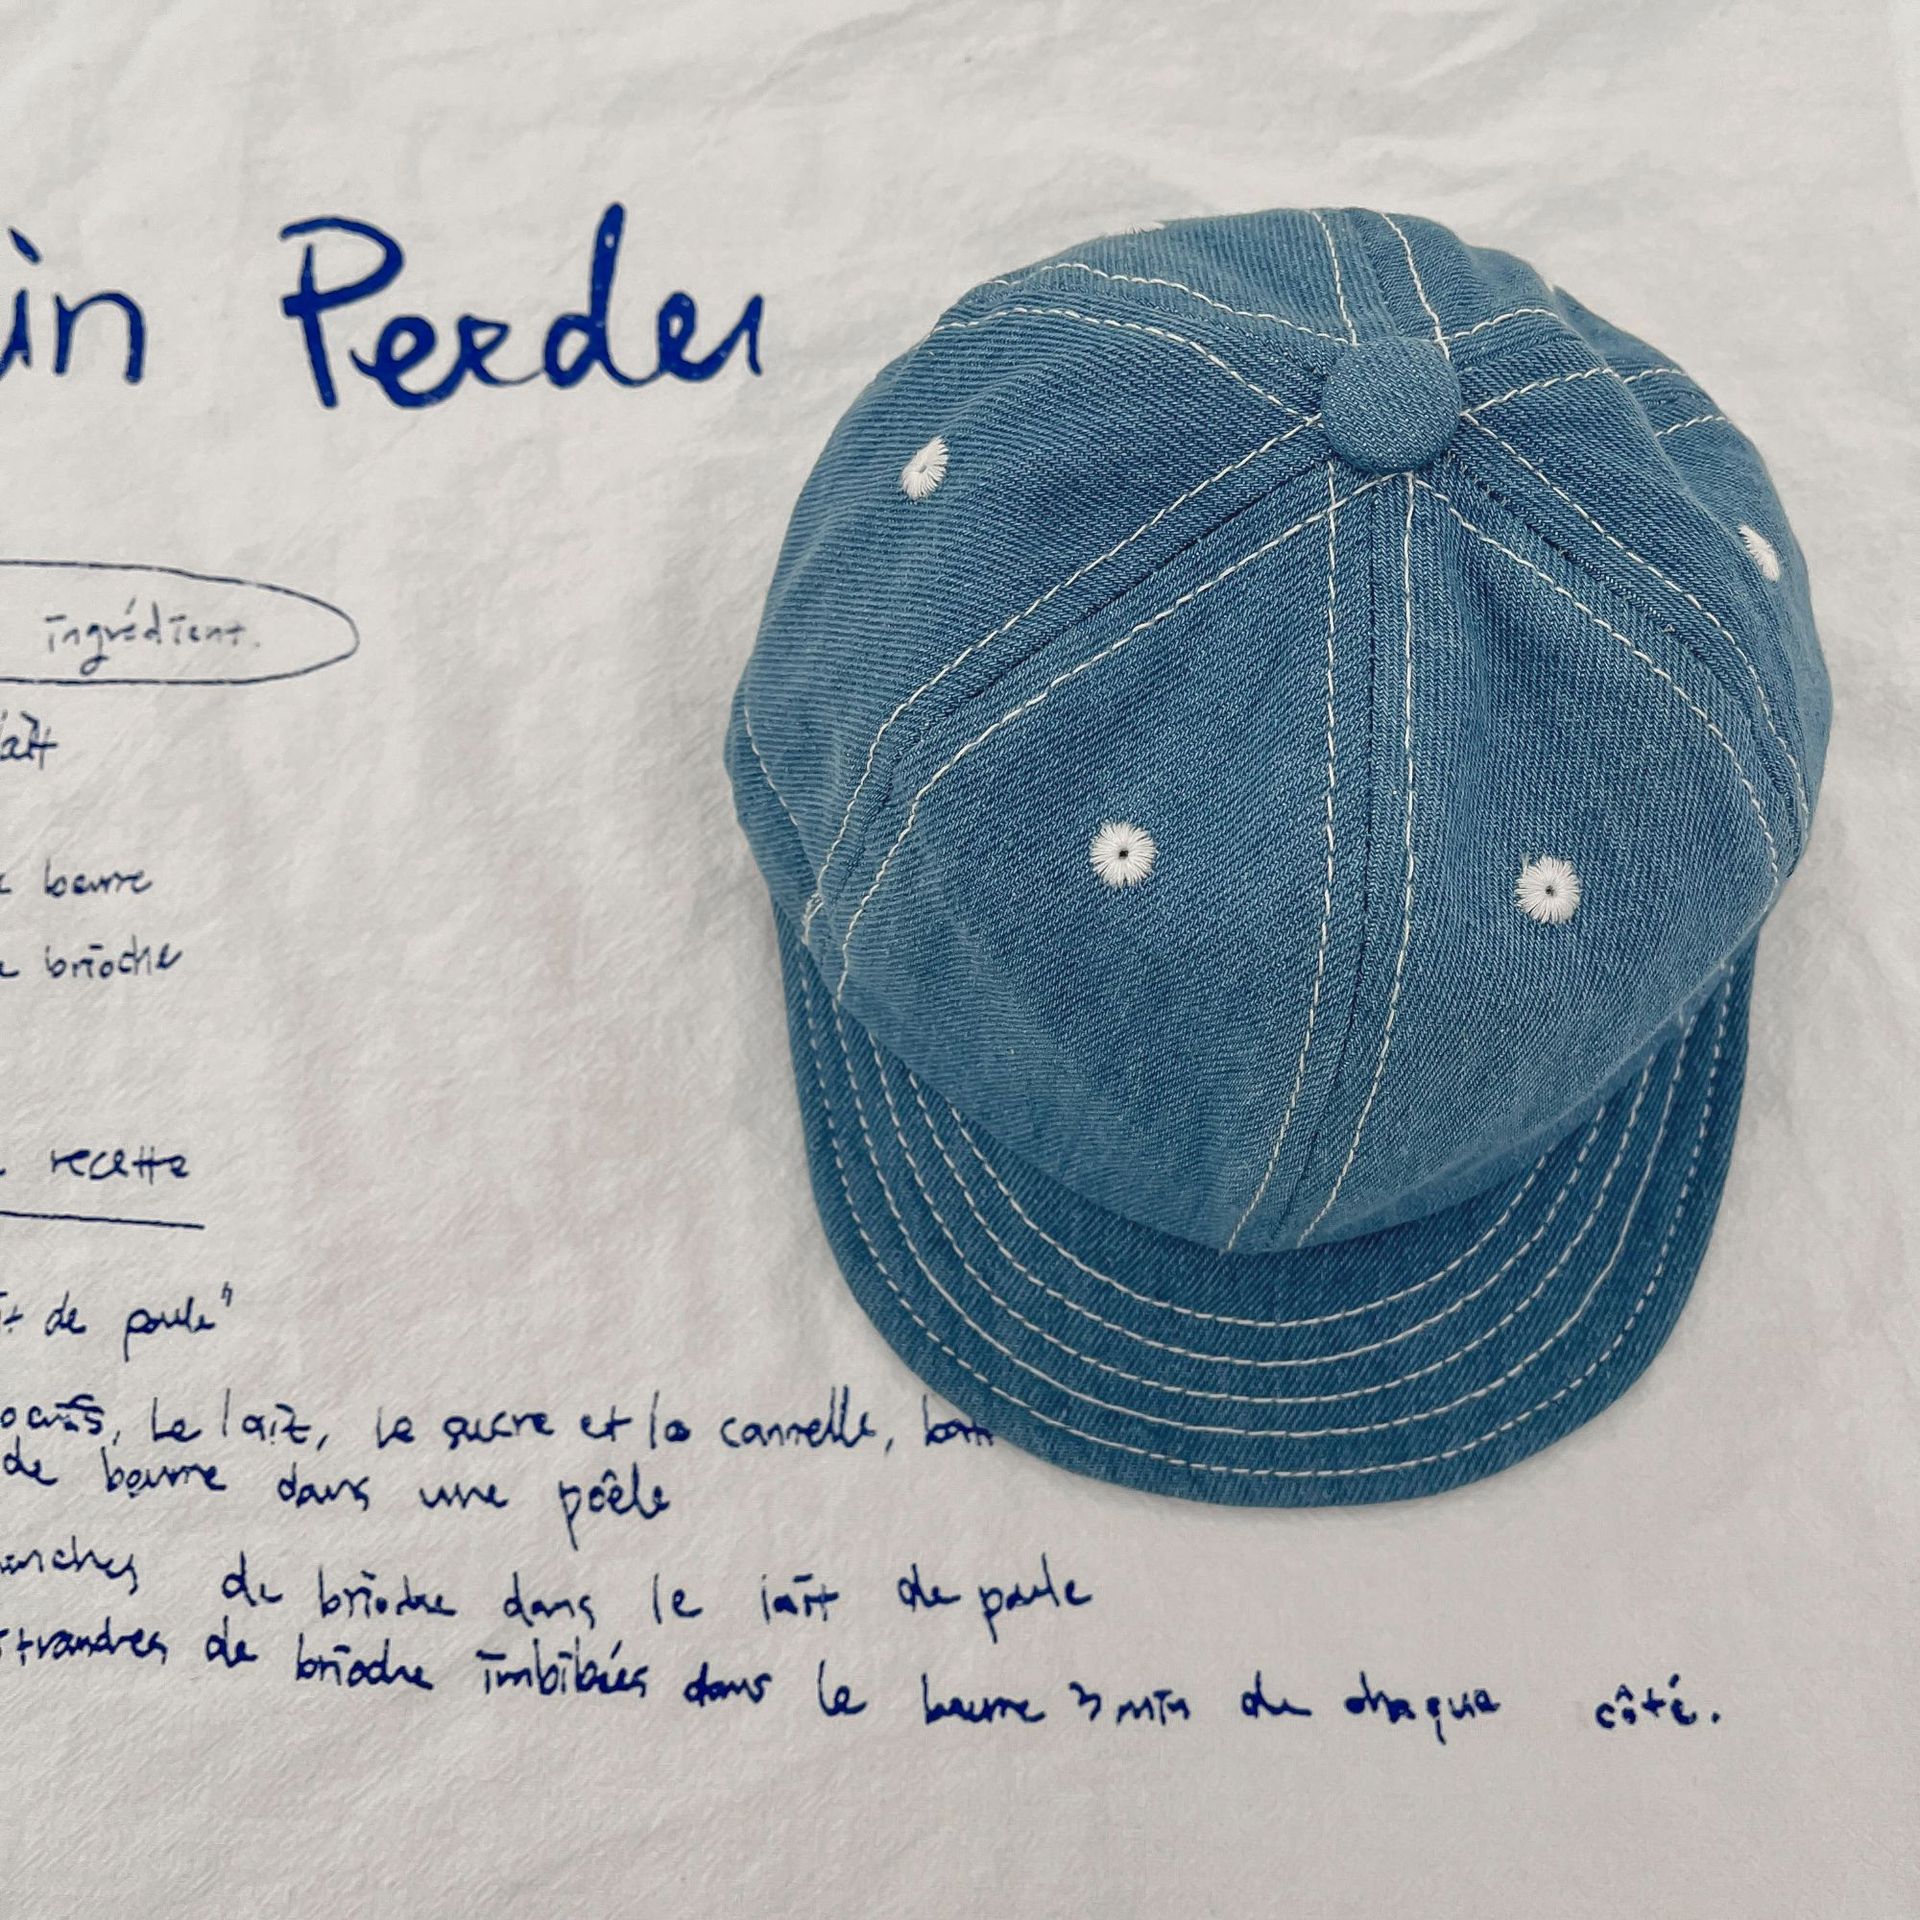 in Perdu
ingrédient.
lait
beurre
brioche
recette
de poule"
le lait, le sucre et la cannelle,
de beurre dans une poêle
de brioche dans le lait de poule
de brioche imbibées dans le beurre 3 min de chaque côté.